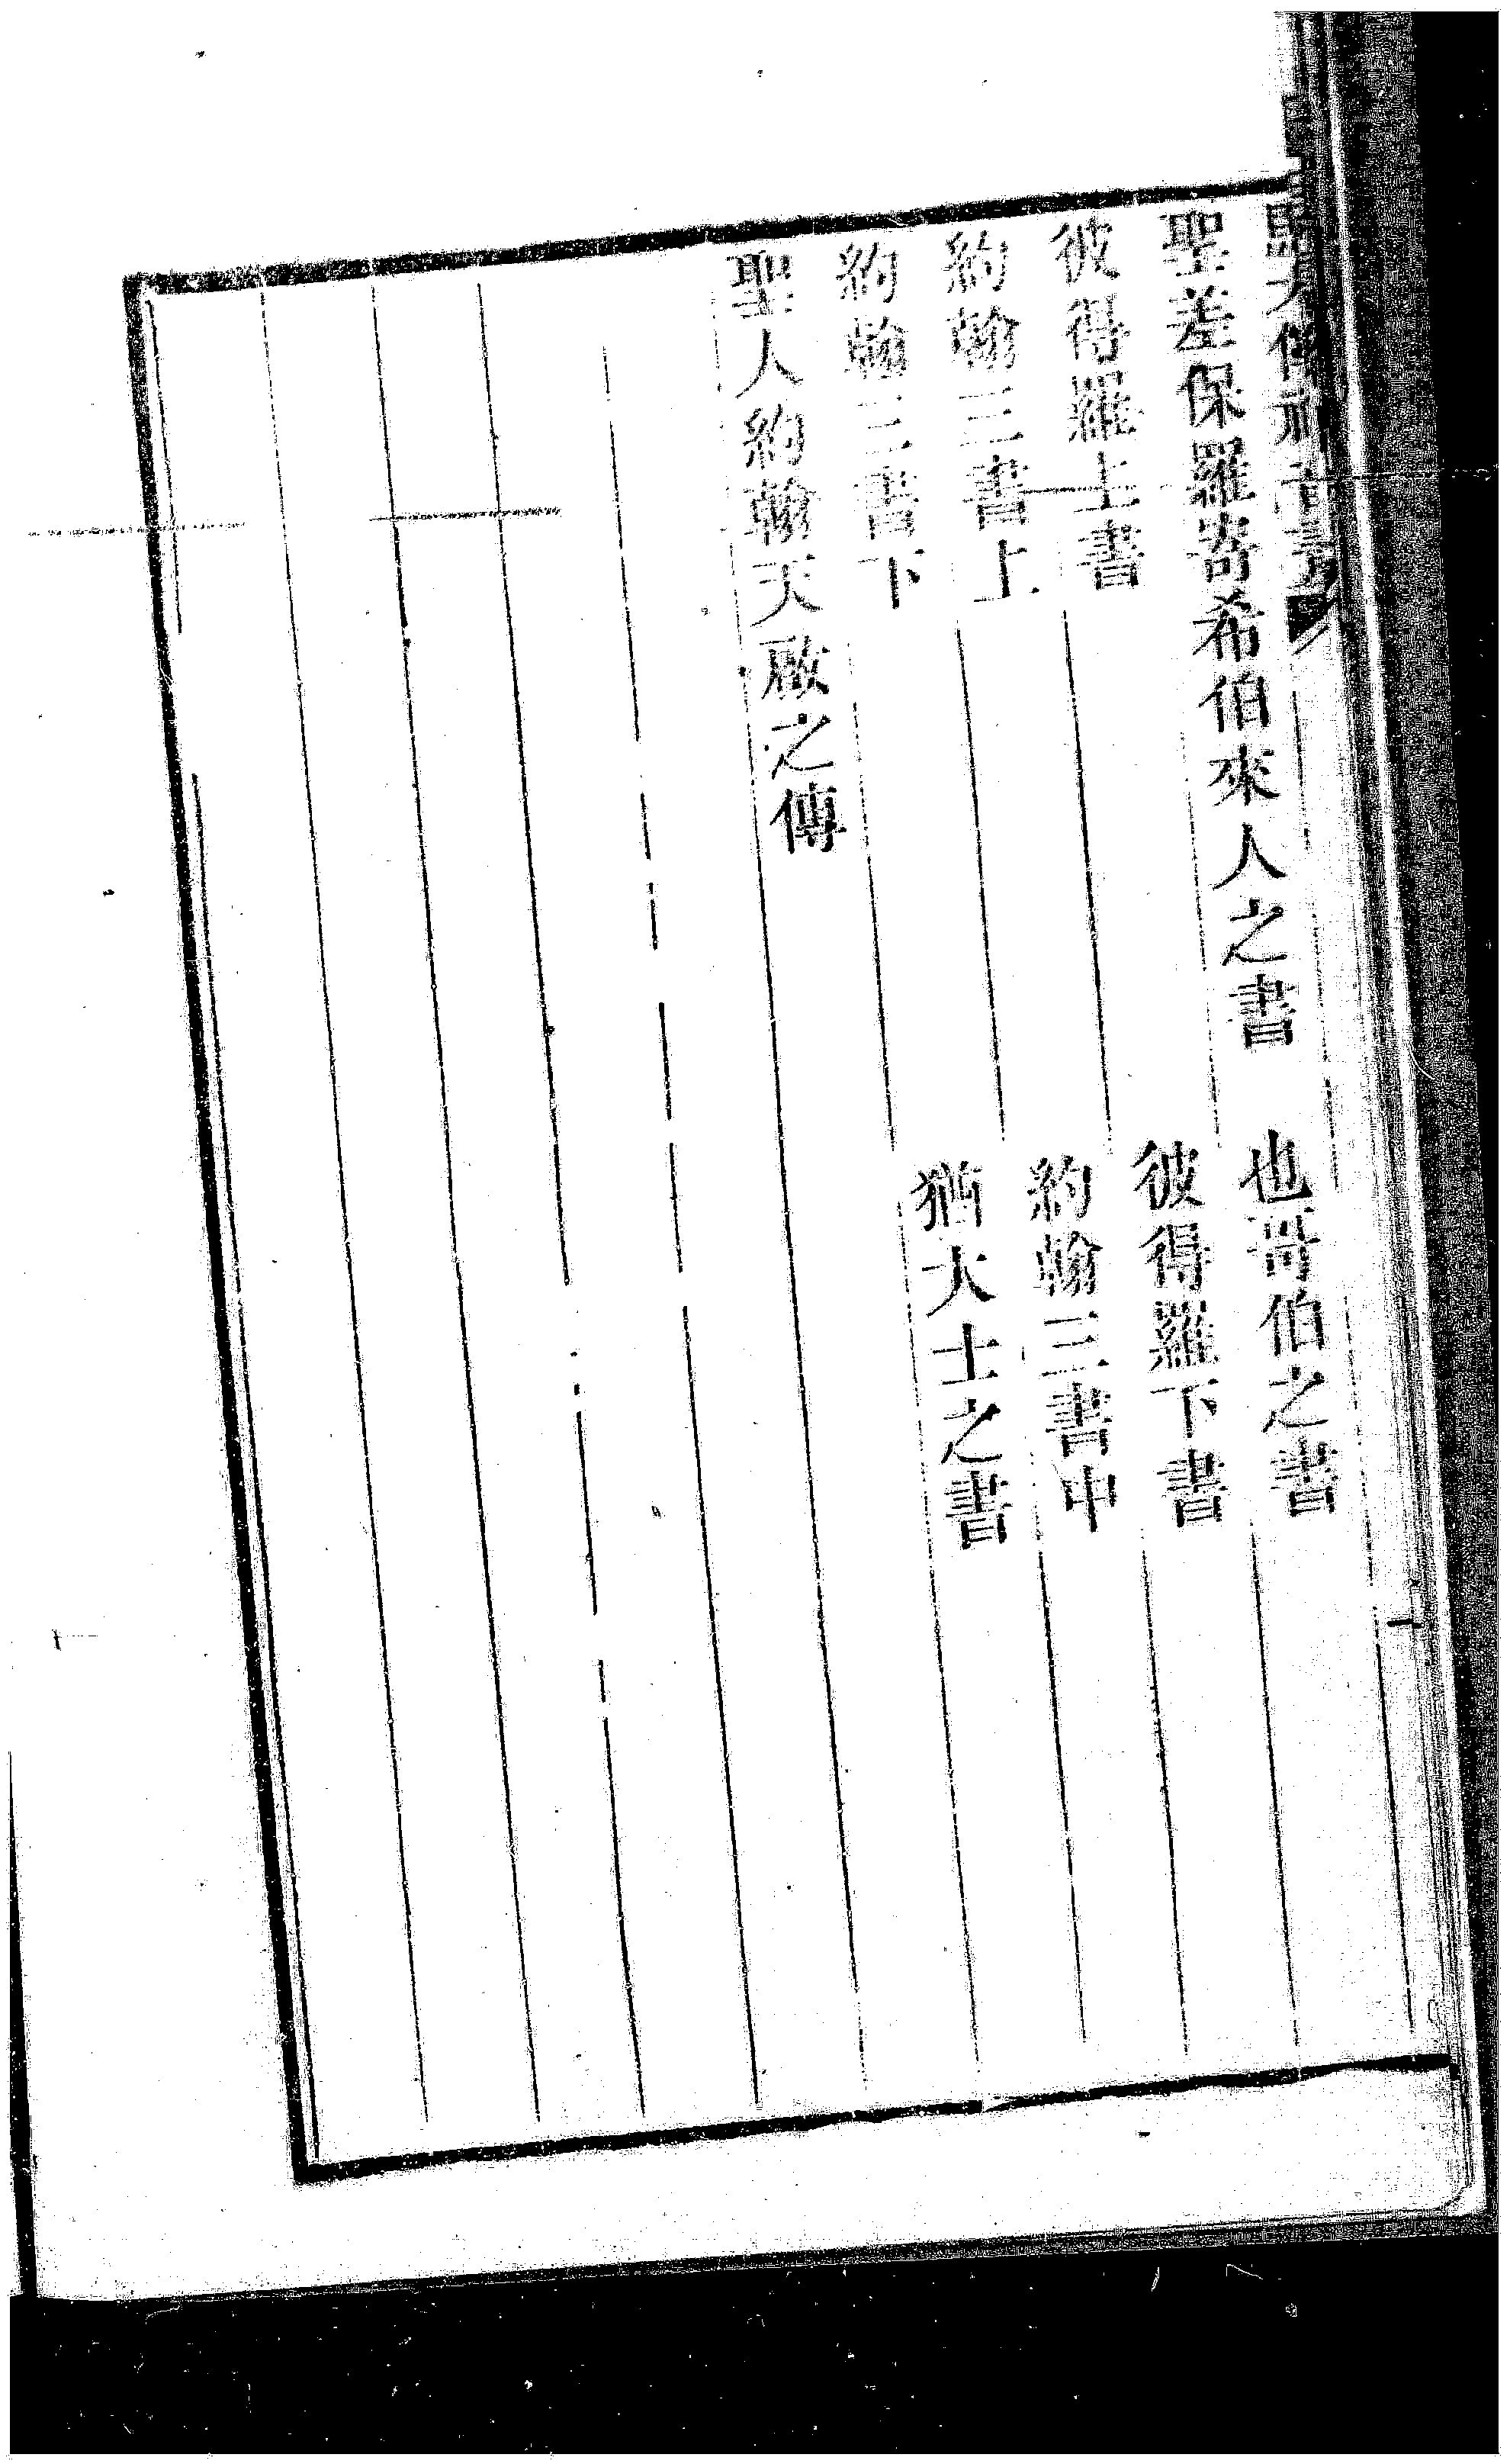 聖差保羅寄希伯來人之書
也哥伯之書
彼得羅上書
彼得羅下書
約翰三書上
約翰三書中
約翰三書下
猶大士之書
聖人約翰天啟之傳